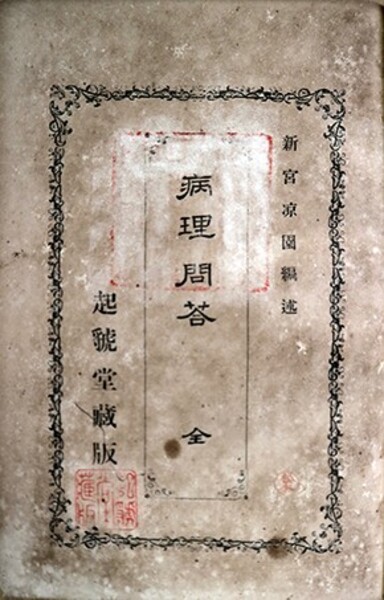 新宮凉園纂述
病理問答 全
起虢堂藏版